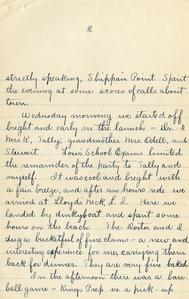 2
strictly speaking, Shippan Point. Spent
the evening at some scores of calls about
town.
Wednesday morning we started off
bright and early in the launch - Dr. &
Mrs. K, Tally, grandmother Mrs. Odell, and
Stewart. Low's School Exams limited
the remainder of the party to Tally and
myself. It was cool and bright with
a fair breeze, and after an hours ride we
arrived at Lloyds Neck L. I. Here we
landed by dinkyboat and spent some
hours on the beach. The Doctor and I
dug a basketful of fine clams - a new and
interesting experience for me, carrying them
back for dinner. They are very fine baked.
In the afternoon there was a base-
ball game - Kings Prep vs a pick-up